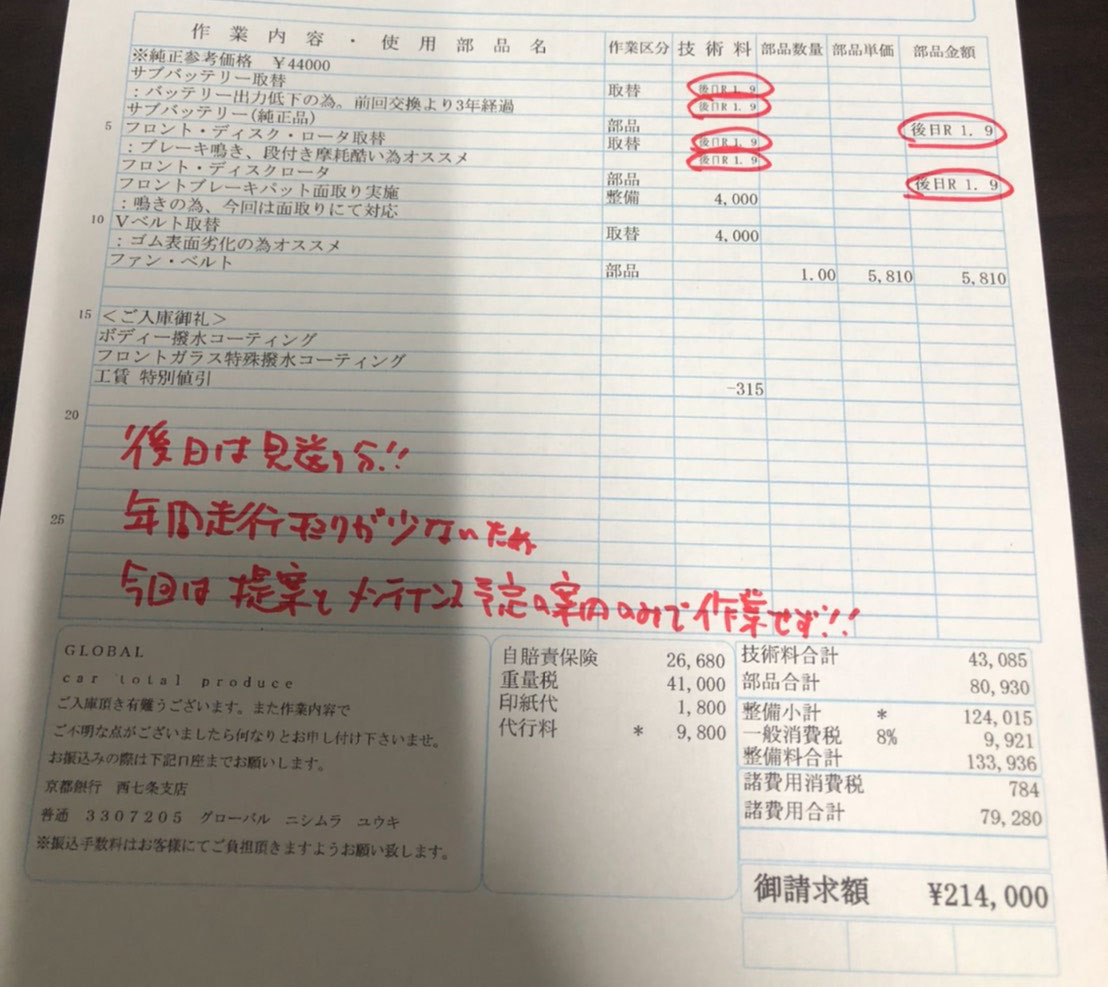 作業内容・使用部品名 作業区分 技術料 部品数量 部品単価 部品金額
※純正参考価格 ￥44000
サブバッテリー取替 取替 後日R1.9
：バッテリー出力低下の為。前回交換より3年経過 後日R1.9
サブバッテリー(純正品) 部品 後日R1.9
5 フロント・ディスク・ロータ取替 取替 後日R1.9
：ブレーキ鳴き、段付き摩耗酷い為オススメ 後日R1.9
フロント・ディスクロータ 部品 後日R1.9
フロントブレーキパット面取り実施 整備 4,000
：鳴きの為、今回は面取りにて対応
10 Vベルト取替 取替 4,000
：ゴム表面劣化の為オススメ
ファン・ベルト 部品 1.00 5,810 5,810
15 ＜ご入庫御礼＞
ボディー撥水コーティング
フロントガラス特殊撥水コーティング
工賃 特別値引 -315
20
後日は見送り分!!
年間走行キョリが少ないため
25
今回は提案とメンテナンス予定の案内のみで作業せず!!
GLOBAL
car total produce
ご入庫頂き有難うございます。また作業内容で
ご不明な点がございましたら何なりとお申し付け下さいませ。
お振込みの際は下記口座までお願いします。
京都銀行 西七条支店
普通 3307205 グローバル ニシムラ ユウキ
※振込手数料はお客様にてご負担頂きますようお願い致します。
自賠責保険 26,680
重量税 41,000
印紙代 1,800
代行料 * 9,800
技術料合計 43,085
部品合計 80,930
整備小計 * 124,015
一般消費税 8% 9,921
整備料合計 133,936
諸費用消費税 784
諸費用合計 79,280
御請求額 ¥214,000